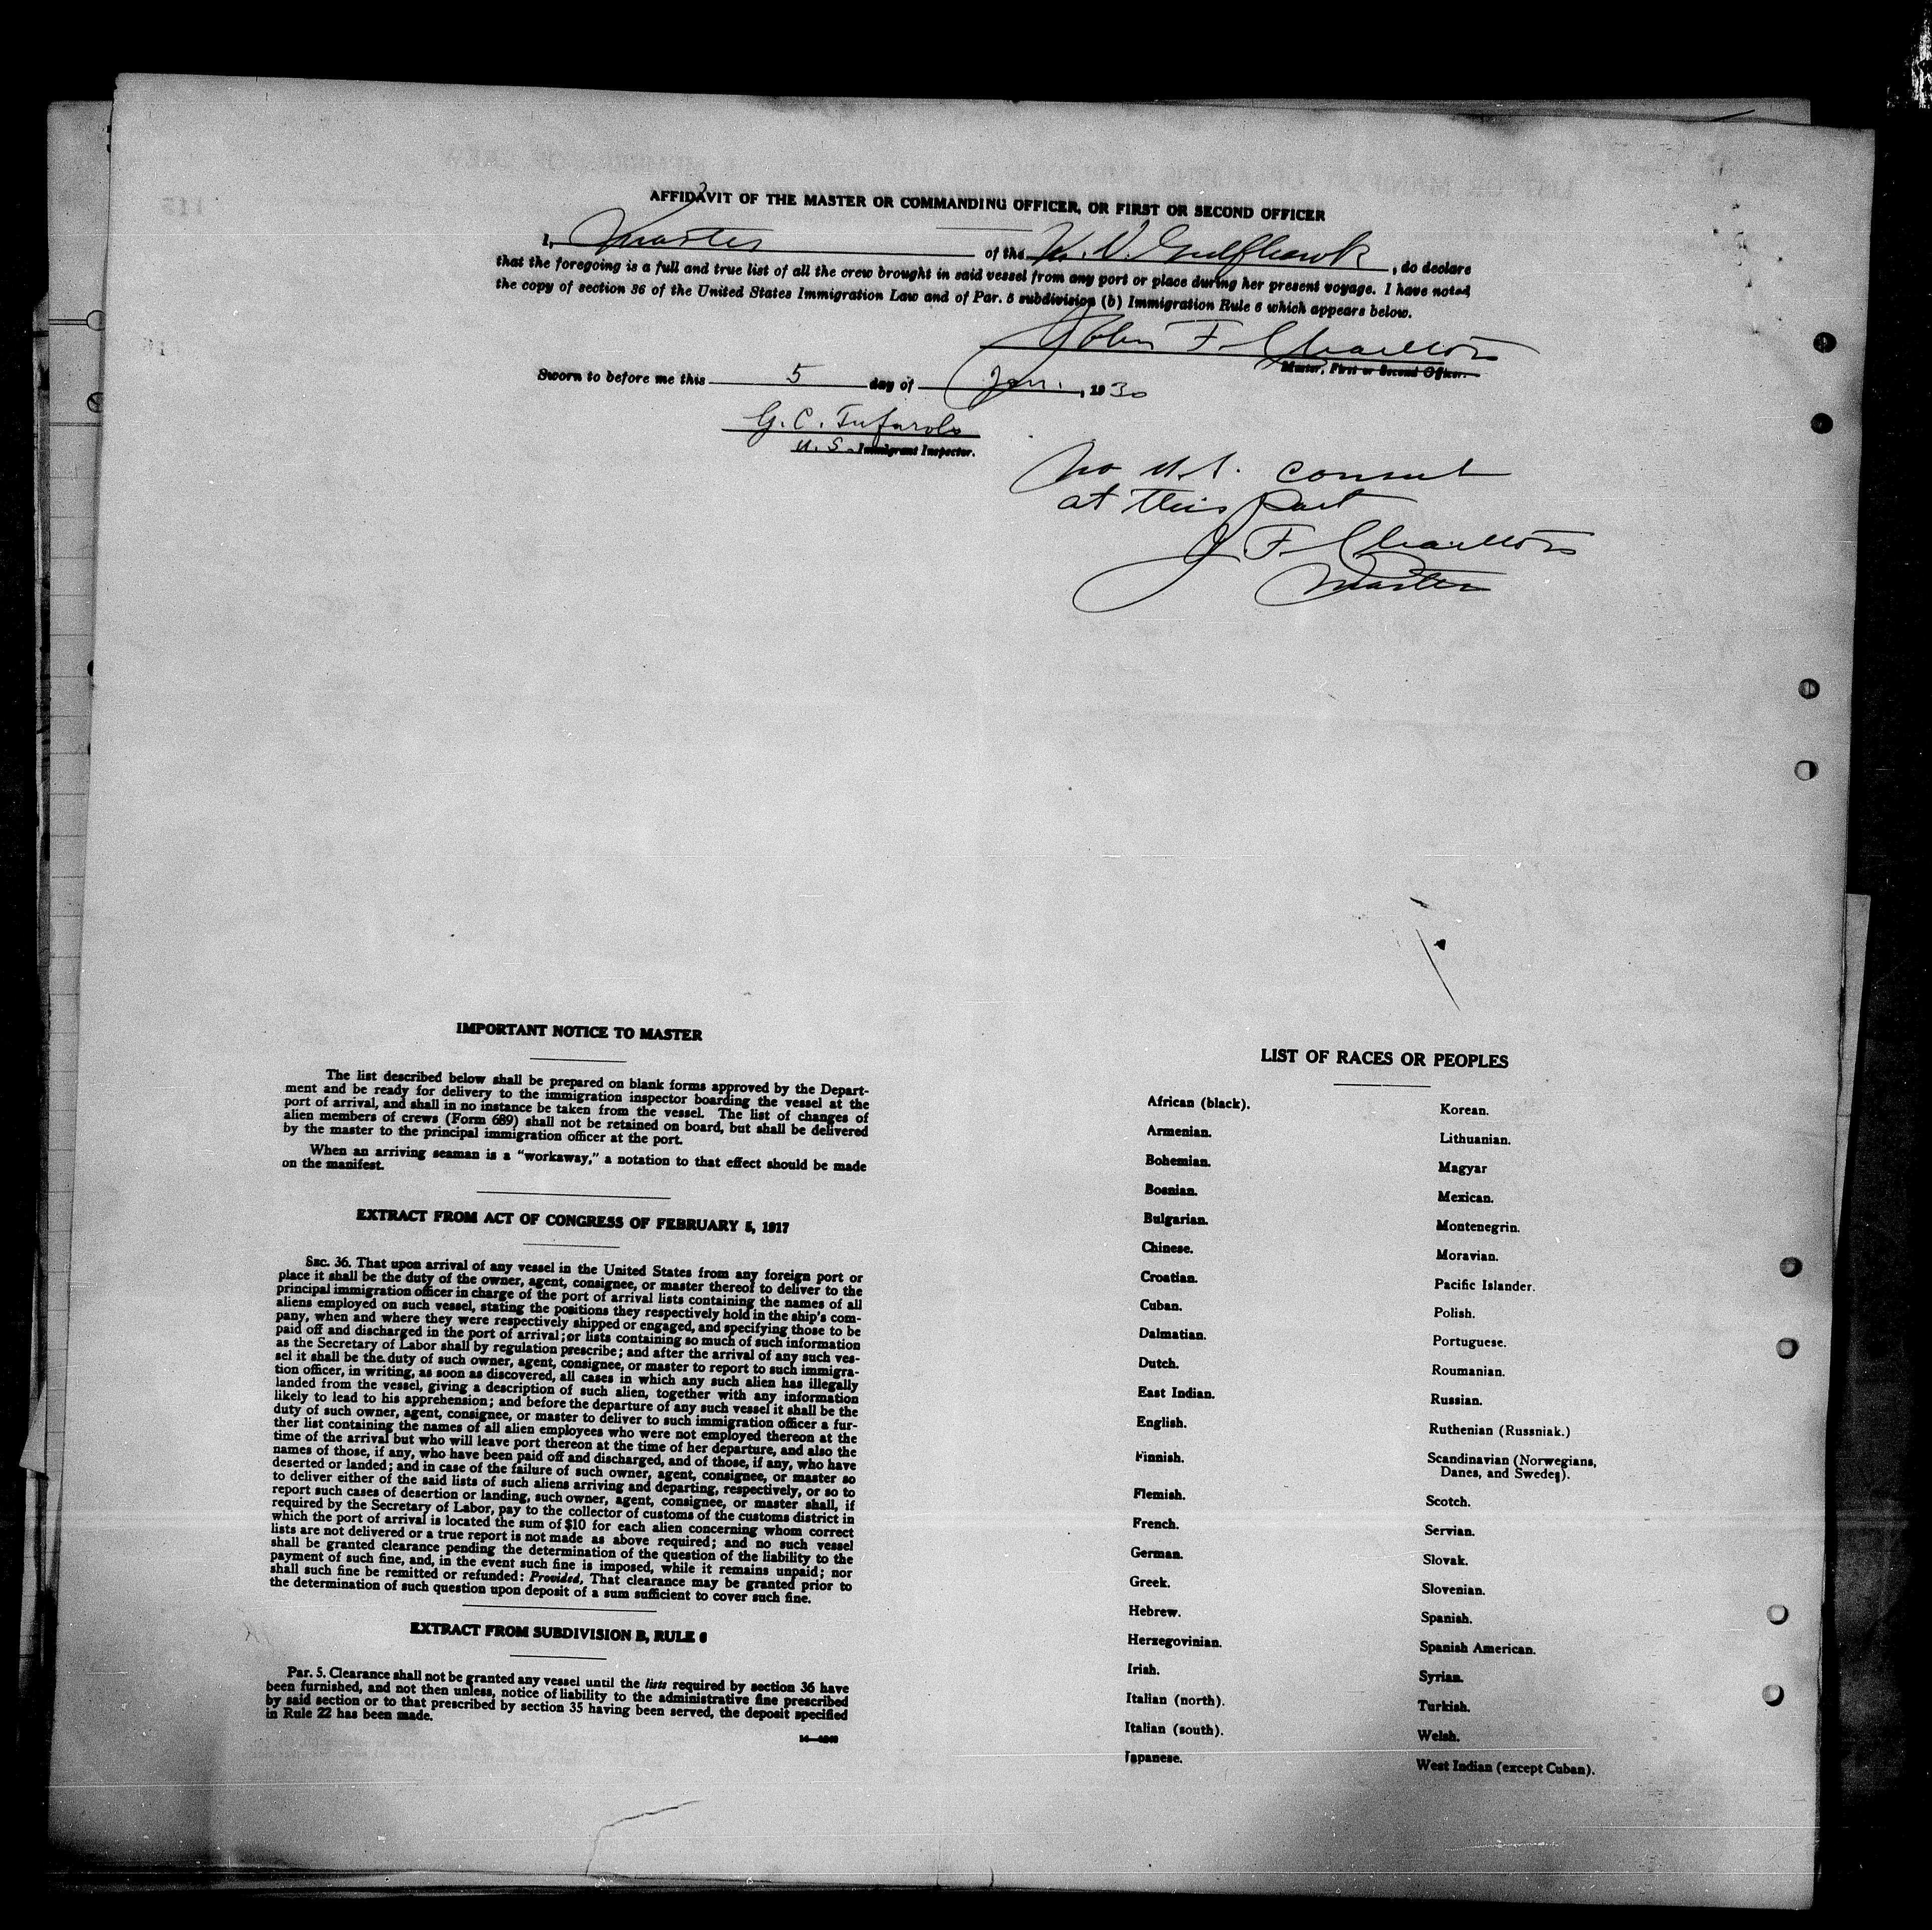 AFFIDAVIT OF THE MASTER OR COMMANDING OFFICER, OR FIRST OR SECOND OFFICER
I, Master of the M. V. Gulfhawk, do declare
that the foregoing is a full and true list of all the crew brought in said vessel from any port or place during her present voyage. I have noted
the copy of section 36 of the United States Immigration Law and of Par. 5 subdivision (b) Immigration Rule 6 which appears below.
John F. Charlton
Master, First or Second Officer.
Sworn to before me this 5 day of Jan., 1930
G. C.
U. S. Immigrant Inspector.
No U.S. Consul
at this Port
J F. Charlton
Master
IMPORTANT NOTICE TO MASTER
The list described below shall be prepared on blank forms approved by the Depart-
ment and be ready for delivery to the immigration inspector boarding the vessel at the
port of arrival, and shall in no instance be taken from the vessel. The list of changes of
alien members of crews (Form 689) shall not be retained on board, but shall be delivered
by the master to the principal immigration officer at the port.
When an arriving seaman is a "workaway," a notation to that effect should be made
on the manifest.
EXTRACT FROM ACT OF CONGRESS OF FEBRUARY 5, 1917
SEC. 36. That upon arrival of any vessel in the United States from any foreign port or
place it shall be the duty of the owner, agent, consignee, or master thereof to deliver to the
principal immigration officer in charge of the port of arrival lists containing the names of all
aliens employed on such vessel, stating the positions they respectively hold in the ship's com-
pany, when and where they were respectively shipped or engaged, and specifying those to be
paid off and discharged in the port of arrival; or lists containing so much of such information
as the Secretary of Labor shall by regulation prescribe; and after the arrival of any such ves-
sel it shall be the duty of such owner, agent, consignee, or master to report to such immigra-
tion officer, in writing, as soon as discovered, all cases in which any such alien has illegally
landed from the vessel, giving a description of such alien, together with any information
likely to lead to his apprehension; and before the departure of any such vessel it shall be the
duty of such owner, agent, consignee, or master to deliver to such immigration officer a fur-
ther list containing the names of all alien employees who were not employed thereon at the
time of the arrival but who will leave port thereon at the time of her departure, and also the
names of those, if any, who have been paid off and discharged, and of those, if any, who have
deserted or landed; and in case of the failure of such owner, agent, consignee, or master so
to deliver either of the said lists of such aliens arriving and departing, respectively, or so to
report such cases of desertion or landing, such owner, agent, consignee, or master shall, if
required by the Secretary of Labor, pay to the collector of customs of the customs district in
which the port of arrival is located the sum of $10 for each alien concerning whom correct
lists are not delivered or a true report is not made as above required; and no such vessel
shall be granted clearance pending the determination of the question of the liability to the
payment of such fine, and, in the event such fine is imposed, while it remains unpaid; nor
shall such fine be remitted or refunded: Provided, That clearance may be granted prior to
the determination of such question upon deposit of a sum sufficient to cover such fine.
EXTRACT FROM SUBDIVISION B, RULE 6
Par. 5. Clearance shall not be granted any vessel until the lists required by section 36 have
been furnished, and not then unless, notice of liability to the administrative fine prescribed
by said section or to that prescribed by section 35 having been served, the deposit specified
in Rule 22 has been made.
LIST OF RACES OR PEOPLES
African (black).
Armenian.
Bohemian.
Bosnian.
Bulgarian.
Chinese.
Croatian.
Cuban.
Dalmatian.
Dutch.
East Indian.
English.
Finnish.
Flemish.
French.
German.
Greek.
Hebrew.
Herzegovinian.
Irish.
Italian (north).
Italian (south).
Japanese.
Korean.
Lithuanian.
Magyar
Mexican.
Montenegrin.
Moravian.
Pacific Islander.
Polish.
Portuguese.
Roumanian.
Russian.
Ruthenian (Russniak.)
Scandinavian (Norwegians,
Danes, and Swedes).
Scotch.
Servian.
Slovak.
Slovenian.
Spanish.
Spanish American.
Syrian.
Turkish.
Welsh.
West Indian (except Cuban).